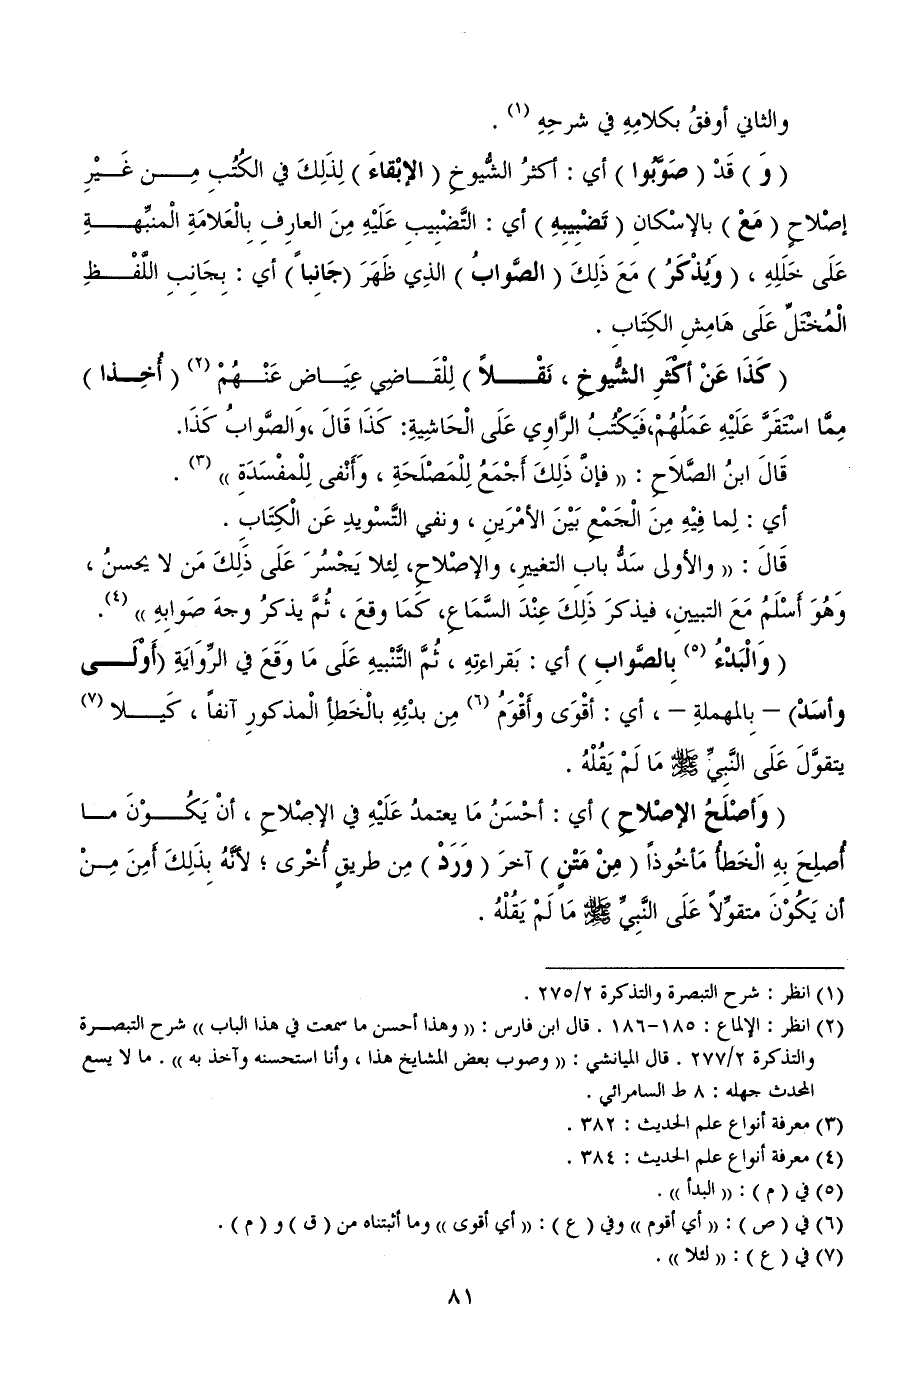 والثاني أوفقُ بكلامِهِ في شرحِهِ (١) .
( وَ ) قَدْ ( صَوَّبُوا ) أي : أكثرُ الشُّيوخِ ( الإبْقاءَ ) لِذَلِكَ في الكُتُبِ مِـــن غَـــيْرِ
إصْلاحٍ ( مَعْ ) بالإسْكانِ ( تَضْبِيبِهِ ) أي : التَّضْبِيبِ عَلَيْهِ مِنَ العارِفِ بِالْعَلامَةِ الْمنبِّهــــةِ
عَلَى خَلَلِهِ ، ( وَيُذْكَرُ ) مَعَ ذَلِكَ ( الصَّوابُ ) الذي ظَهَرَ (جَانِباً ) أي : بِجَانِبِ اللَّفْـــظِ
الْمُخْتَلِّ عَلَى هَامِشِ الكِتَابِ .
( كَذَا عَنْ أكْثَرِ الشُّيوخِ ، نَقْــــلاً ) لِلْقَـــاضِي عِيَـــاض عَنْـــهُمْ (٢) ( أُخِـــذا )
مِمَّا اسْتَقَرَّ عَلَيْهِ عَمَلُهُمْ،فَيَكْتُبُ الرَّاوِي عَلَى الْحَاشِيةِ: كَذَا قَالَ ،وَالصَّوابُ كَذَا.
قَالَ ابنُ الصَّلاَحِ : (( فإنَّ ذَلِكَ أَجْمَعُ لِلْمَصْلَحَةِ ، وَأَنْفى لِلْمفْسَدَةِ )) (٣) .
أي : لِما فِيْهِ مِنَ الْجَمْعِ بَيْنَ الأمْرَينِ ، ونفي التَّسْويدِ عَنِ الْكِتَابِ .
قَالَ : (( والأولى سَدُّ بابِ التغييرِ، والإصْلاحِ، لِئلا يَجْسُرَ عَلَى ذَلِكَ مَن لا يحسنُ ،
وَهُوَ أَسْلَمُ مَعَ التبيينِ، فيذكرَ ذَلِكَ عِنْدَ السَّمَاعِ، كَمَا وقعَ ، ثُمَّ يذكرُ وجهَ صَوابِهِ )) (٤).
( وَالْبَدْءُ (٥) بِالصَّوابِ ) أي : بَقراءتِهِ ، ثُمَّ التَّنْبيهِ عَلَى مَا وَقَعَ في الرِّوَايَةِ (أَوْلَــــى
وأسَدْ) – بالمهملةِ – ، أي : أقْوَى وأَقْوَمُ (٦) مِن بدْئِهِ بالْخَطَأِ الْمذكورِ آنفاً ، كَيْـــــلا (٧)
يتقوَّلَ عَلَى النَّبِيِّ ﷺ مَا لَمْ يَقُلْهُ .
( وَأصْلَحُ الإصْلاحِ ) أي : أحْسَنُ مَا يعتمدُ عَلَيْهِ في الإصْلاحِ ، أنْ يَكُـــوْنَ مـــا
أُصلِحَ بِهِ الْخَطأُ مَأخُوذاً ( مِنْ مَتْنٍ ) آخرَ ( وَرَدْ ) مِن طريقٍ أُخْرى ؛ لأنَّهُ بِذَلِكَ أمِنَ مِـــنْ
أن يَكُوْنَ متقوِّلاً عَلَى النَّبِيِّ ﷺ مَا لَمْ يَقُلْهُ .
(١) انظر : شرح التبصرة والتذكرة ٢/٢٧٥ .
(٢) انظر : الإلماع : ١٨٥–١٨٦ . قال ابن فارس : (( وهذا أحسن ما سمعت في هذا الباب )) شرح التبصـــرة
والتذكرة ٢/٢٧٧ . قال الميانشي : (( وصوب بعض المشايخ هذا ، وأنا استحسنه وآخذ به )) . ما لا يسع
المحدث جهله : ٨ ط السامرائي .
(٣) معرفة أنواع علم الحديث : ٣٨٢ .
(٤) معرفة أنواع علم الحديث : ٣٨٤ .
(٥) في ( م ) : (( البدأ )) .
(٦) في ( ص ) : (( أي أقوم )) وفي ( ع ) : (( أي أقوى )) وما أثبتناه من ( ق ) و ( م ) .
(٧) في ( ع ) : (( لئلا )) .
٨١